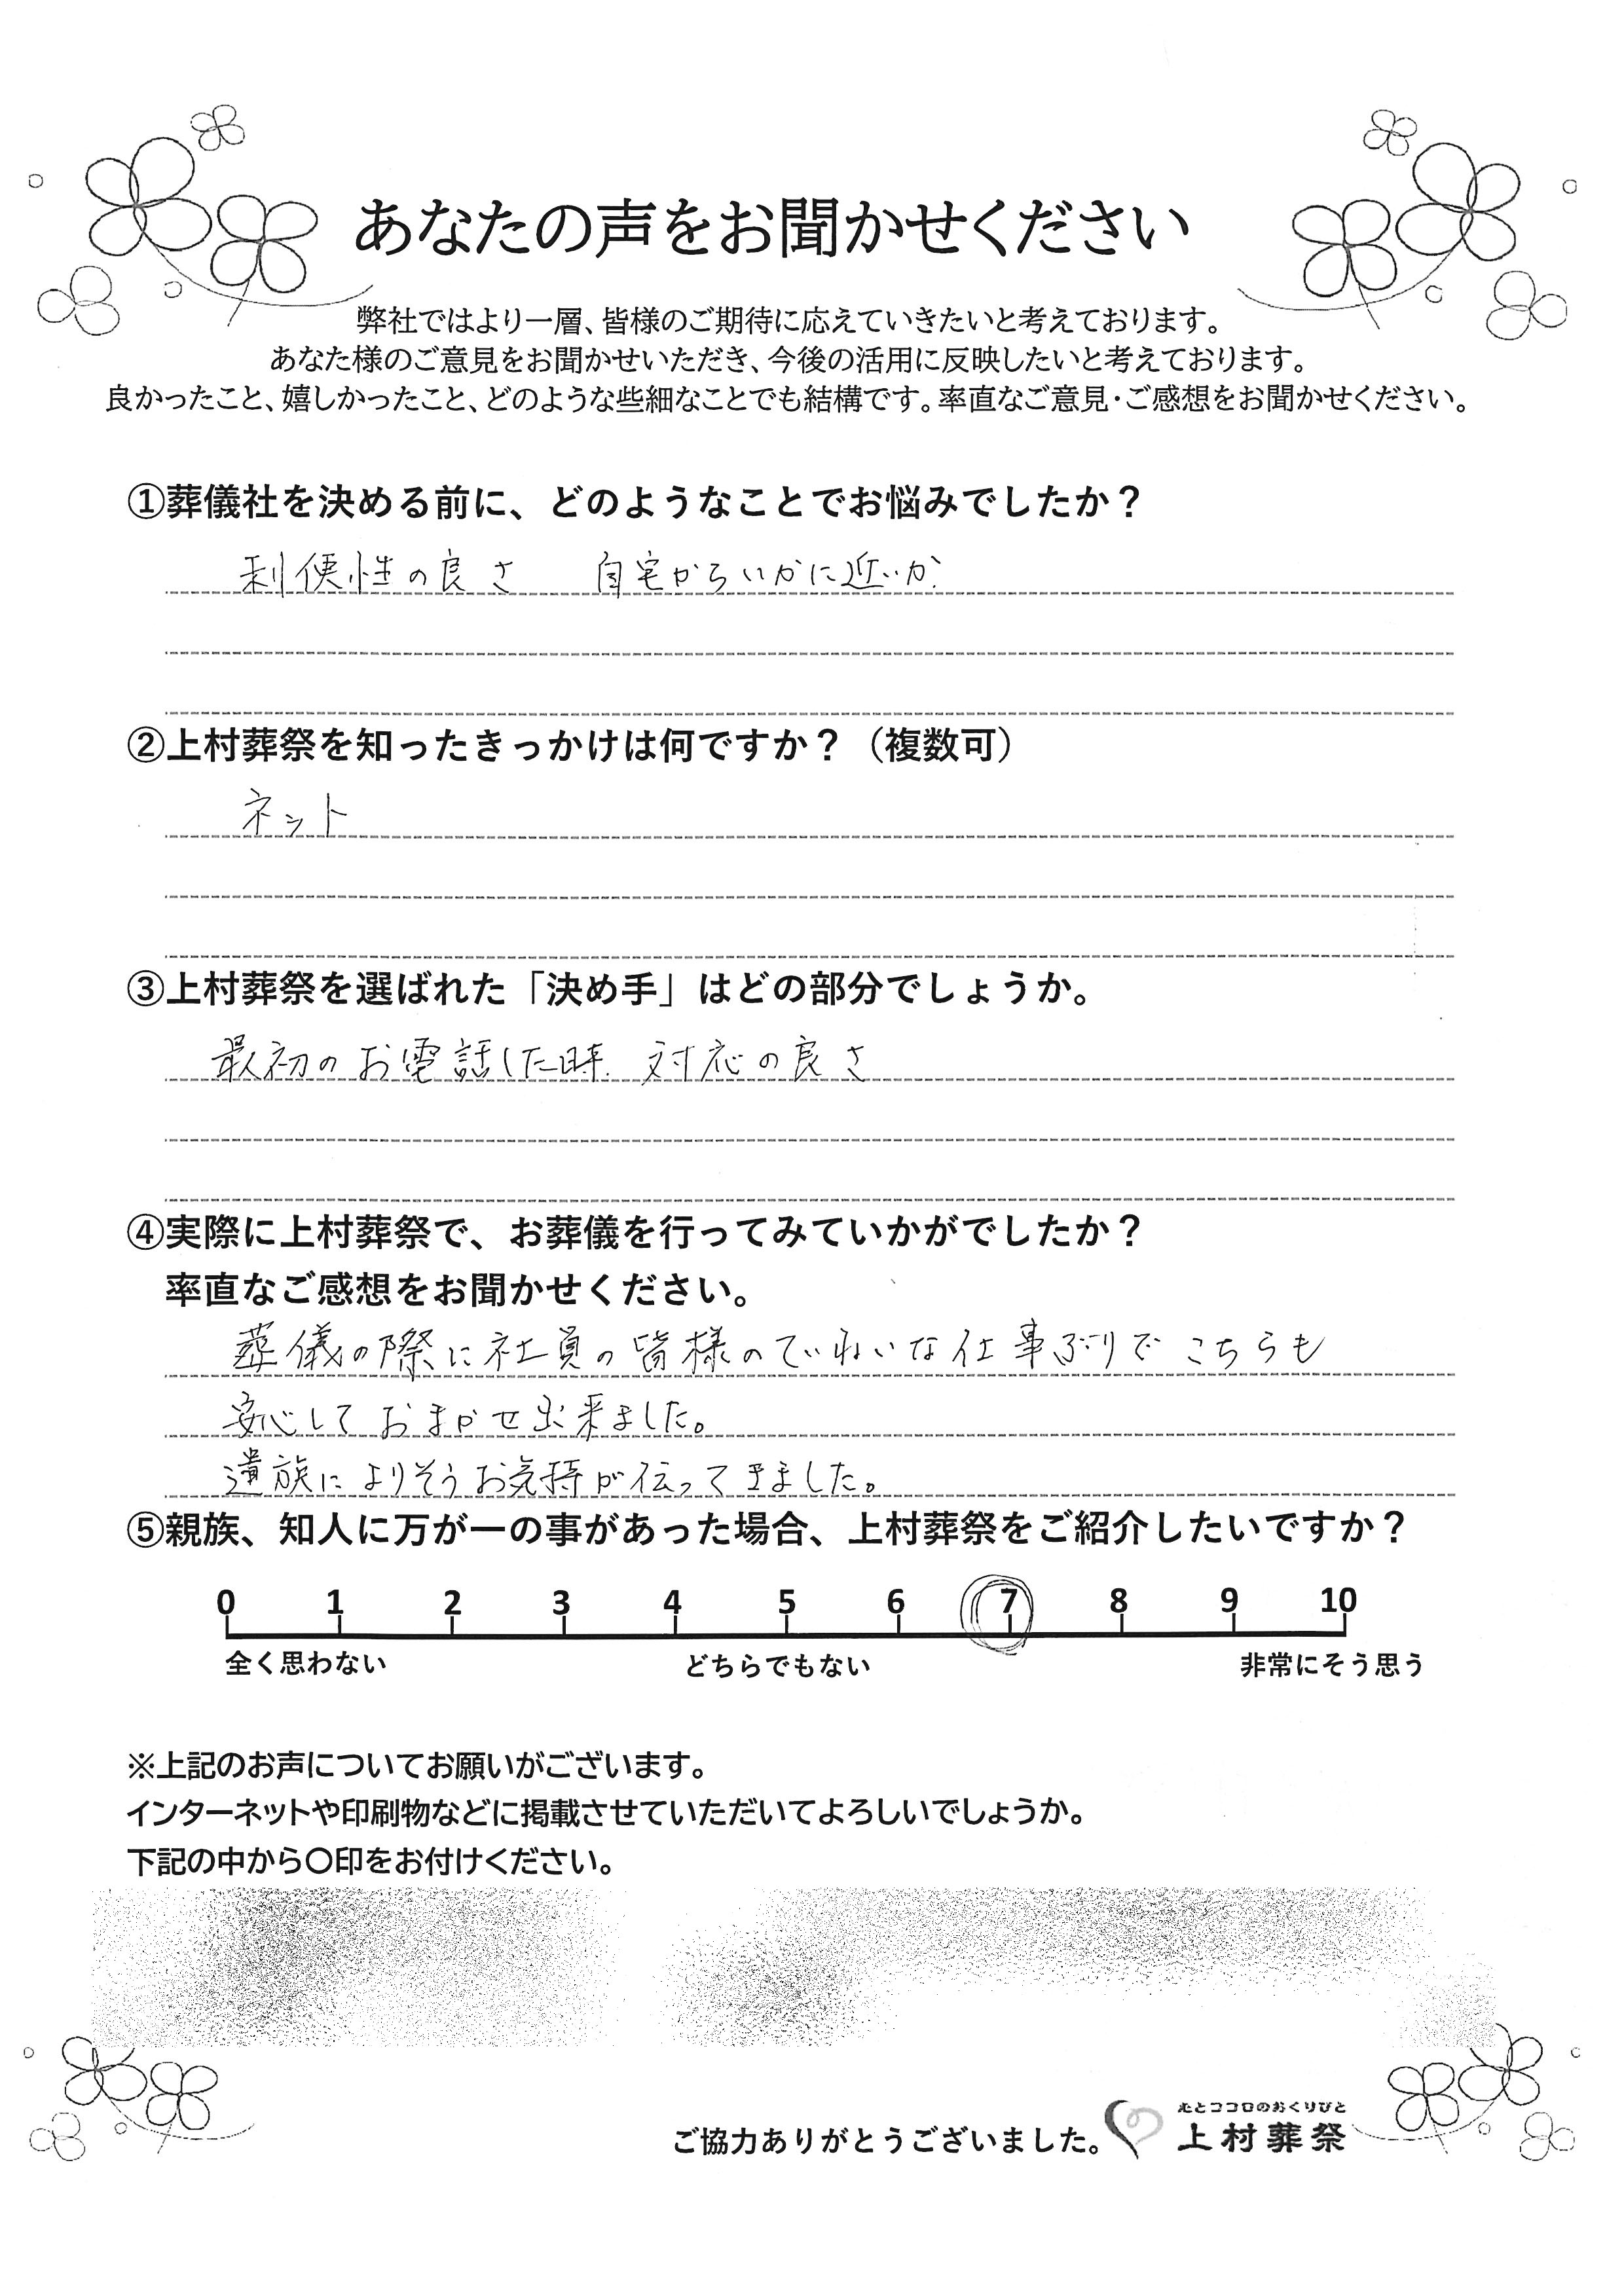 あなたの声をお聞かせください
弊社ではより一層、皆様のご期待に応えていきたいと考えております。
あなた様のご意見をお聞かせいただき、今後の活用に反映したいと考えております。
良かったこと、嬉しかったこと、どのような些細なことでも結構です。率直なご意見・ご感想をお聞かせください。
①葬儀社を決める前に、どのようなことでお悩みでしたか？
利便性の良さ 自宅からいかに近いか
②上村葬祭を知ったきっかけは何ですか？（複数可）
ネット
③上村葬祭を選ばれた「決め手」はどの部分でしょうか。
最初のお電話した時. 対応の良さ
④実際に上村葬祭で、お葬儀を行ってみていかがでしたか？
率直なご感想をお聞かせください。
葬儀の際に社員の皆様のていねいな仕事ぶりで こちらも
安心して おまかせ出来ました。
遺族に よりそう お気持が伝ってきました。
⑤親族、知人に万が一の事があった場合、上村葬祭をご紹介したいですか？
0 1 2 3 4 5 6 7 8 9 10
全く思わない どちらでもない 非常にそう思う
※上記のお声についてお願いがございます。
インターネットや印刷物などに掲載させていただいてよろしいでしょうか。
下記の中から〇印をお付けください。
心とココロのおくりびと
ご協力ありがとうございました。 上村葬祭